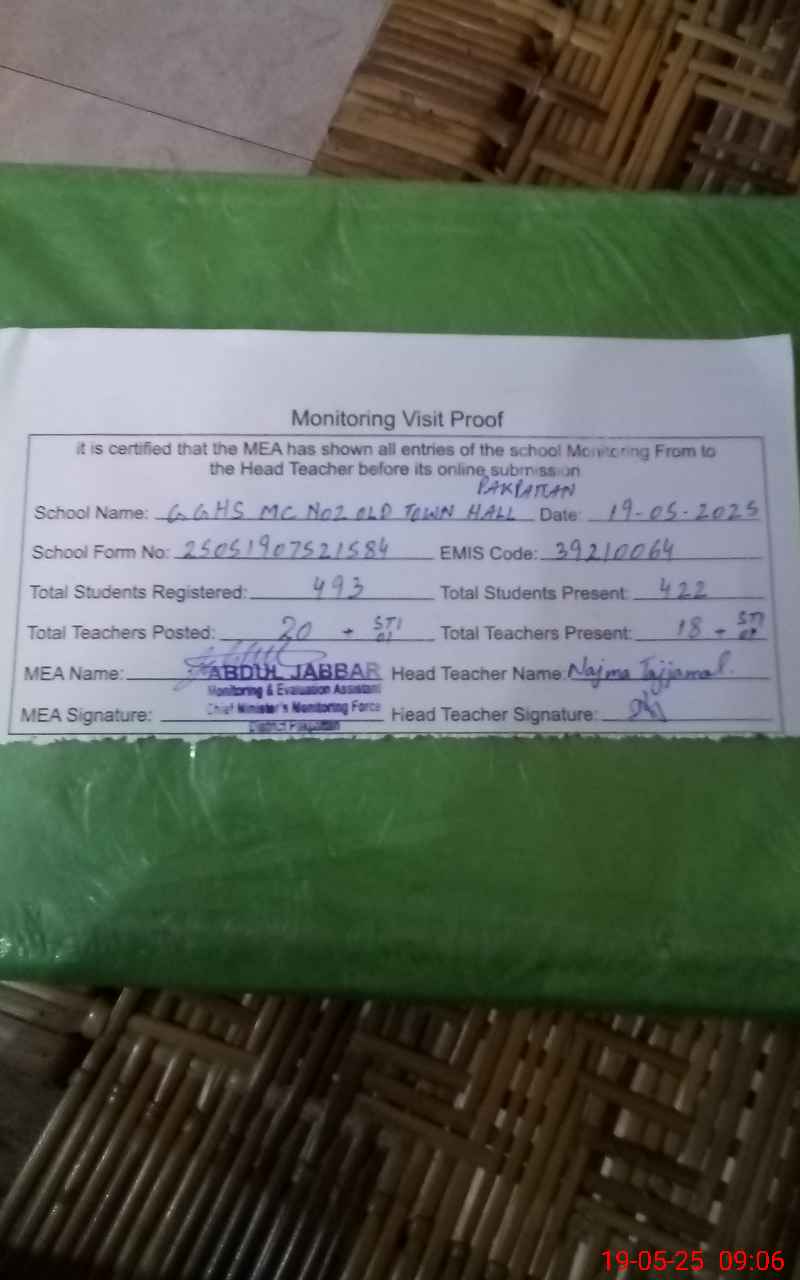 Monitoring Visit Proof
it is certified that the MEA has shown all entries of the school Monitoring From to
the Head Teacher before its online submission
PAKPATTAN
School Name: G.GHS MC NO2 OLD TOWN HALL Date: 19-05-2025
School Form No: 25051907521584 EMIS Code: 39210064
Total Students Registered: 493 Total Students Present: 422
Total Teachers Posted: 20 + STI 01 Total Teachers Present: 18 + STI
MEA Name: ABDUL JABBAR Head Teacher Name: Najma Tajjamal.
Monitoring & Evaluation Assistant
Chief Minister's Monitoring Force
MEA Signature: Head Teacher Signature:
District Pakpattan
19-05-25 09:06